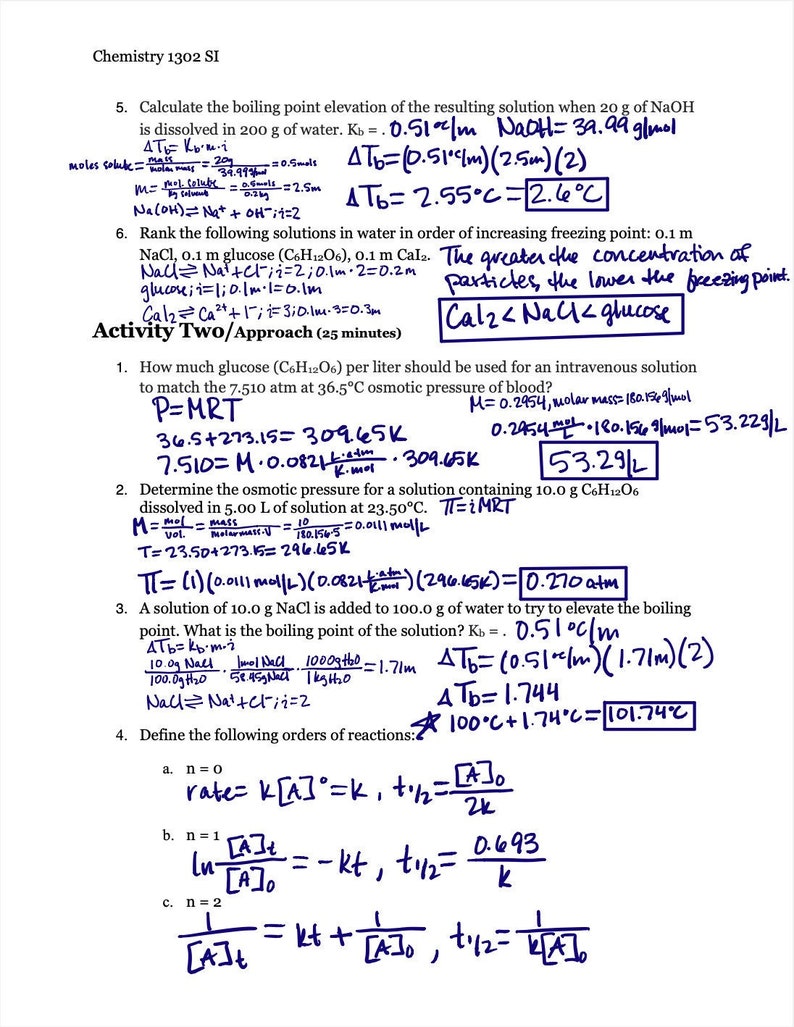 Chemistry 1302 SI
5. Calculate the boiling point elevation of the resulting solution when 20 g of NaOH
is dissolved in 200 g of water. Kb = . 0.51°C/m NaOH= 39.99g/mol
ΔTb= Kb·m·i
moles solute= mass/molar mass = 20g/39.99g/mol =0.5mols
m= mol. solute/kg solvent = 0.5mols/0.2kg =2.5m
Na(OH)⇌Na⁺ + OH⁻; i=2
ΔTb=(0.51°C/m)(2.5m)(2)
ΔTb= 2.55°C= 2.6°C
6. Rank the following solutions in water in order of increasing freezing point: 0.1 m
NaCl, 0.1 m glucose (C6H12O6), 0.1 m CaI2. The greater the concentration of
particles, the lower the freezing point.
NaCl⇌Na⁺+Cl⁻; i=2; 0.1m·2=0.2m
glucose; i=1; 0.1m·1=0.1m
CaI2⇌Ca²⁺+I⁻; i=3; 0.1m·3=0.3m
CaI2<NaCl<glucose
Activity Two/Approach (25 minutes)
1. How much glucose (C6H12O6) per liter should be used for an intravenous solution
to match the 7.510 atm at 36.5°C osmotic pressure of blood?
P=MRT
36.5+273.15= 309.65K
7.510= M·0.0821 L·atm/K·mol ·309.65K
M= 0.2954, molar mass=180.156g/mol
0.2954 mol/L ·180.156g/mol=53.22g/L
53.2g/L
2. Determine the osmotic pressure for a solution containing 10.0 g C6H12O6
dissolved in 5.00 L of solution at 23.50°C. π=iMRT
M= mol/vol. = mass/molar mass·V = 10/180.156·5 =0.0111 mol/L
T= 23.50+273.15= 296.65K
π= (1)(0.0111mol/L)(0.0821 L·atm/K·mol)(296.65K)= 0.270 atm
3. A solution of 10.0 g NaCl is added to 100.0 g of water to try to elevate the boiling
point. What is the boiling point of the solution? Kb = . 0.51°C/m
ΔTb=kb·m·i
10.0g NaCl/100.0g H2O · 1mol NaCl/58.45g NaCl · 1000g H2O/1kg H2O =1.71m
NaCl⇌Na⁺+Cl⁻; i=2
ΔTb=(0.51°C/m)(1.71m)(2)
ΔTb=1.744
☆ 100°C+1.74°C= 101.74°C
4. Define the following orders of reactions:
a. n = 0
rate= k[A]⁰=k, t1/2= [A]0/2k
b. n = 1
ln [A]t/[A]0 = -kt, t1/2= 0.693/k
c. n = 2
1/[A]t = kt + 1/[A]0, t1/2= 1/k[A]0